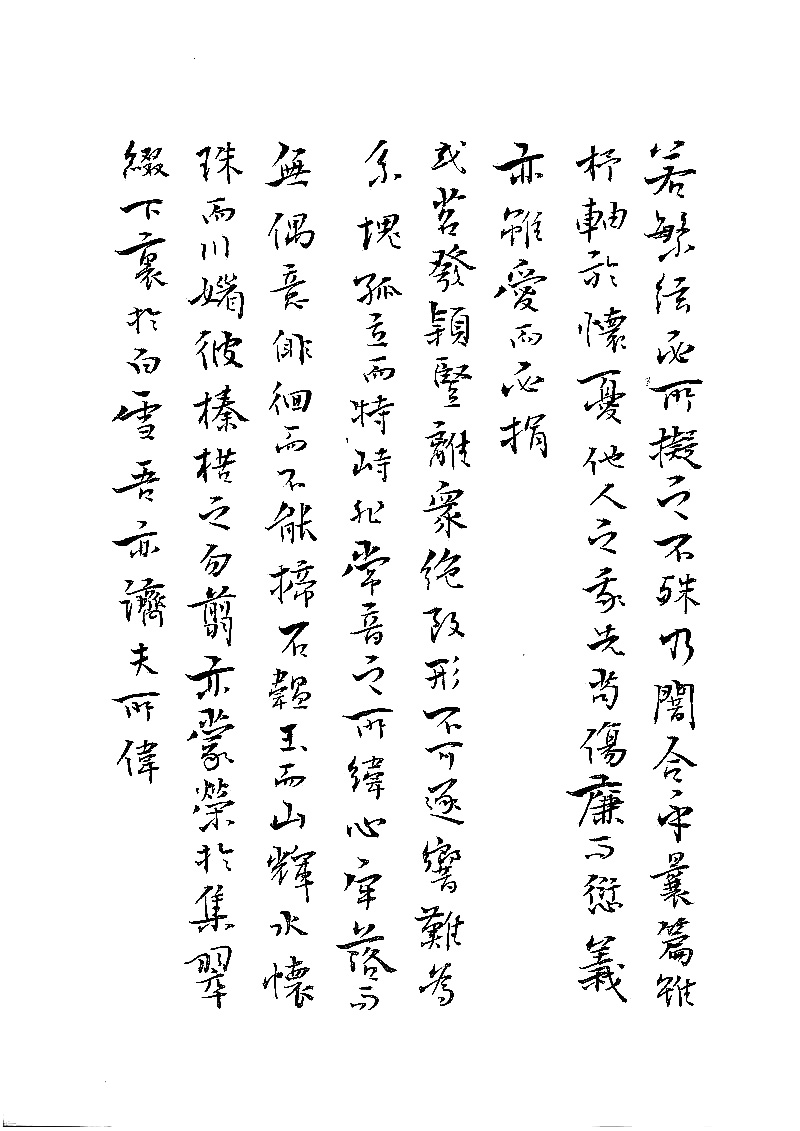 若繁絃必所擬之不殊乃闇合乎曩篇雖
杼軸於懷憂他人之我先苟傷廉而愆義
亦雖愛而必捐
或苕發穎豎離衆絕致形不可逐響難為
系塊孤立而特峙非常音之所緯心牢落而
無偶意俳徊而不能揥石韞玉而山輝水懷
珠而川媚彼榛楛之勿翦亦蒙榮於集翠
綴下裏於白雪吾亦濟夫所偉